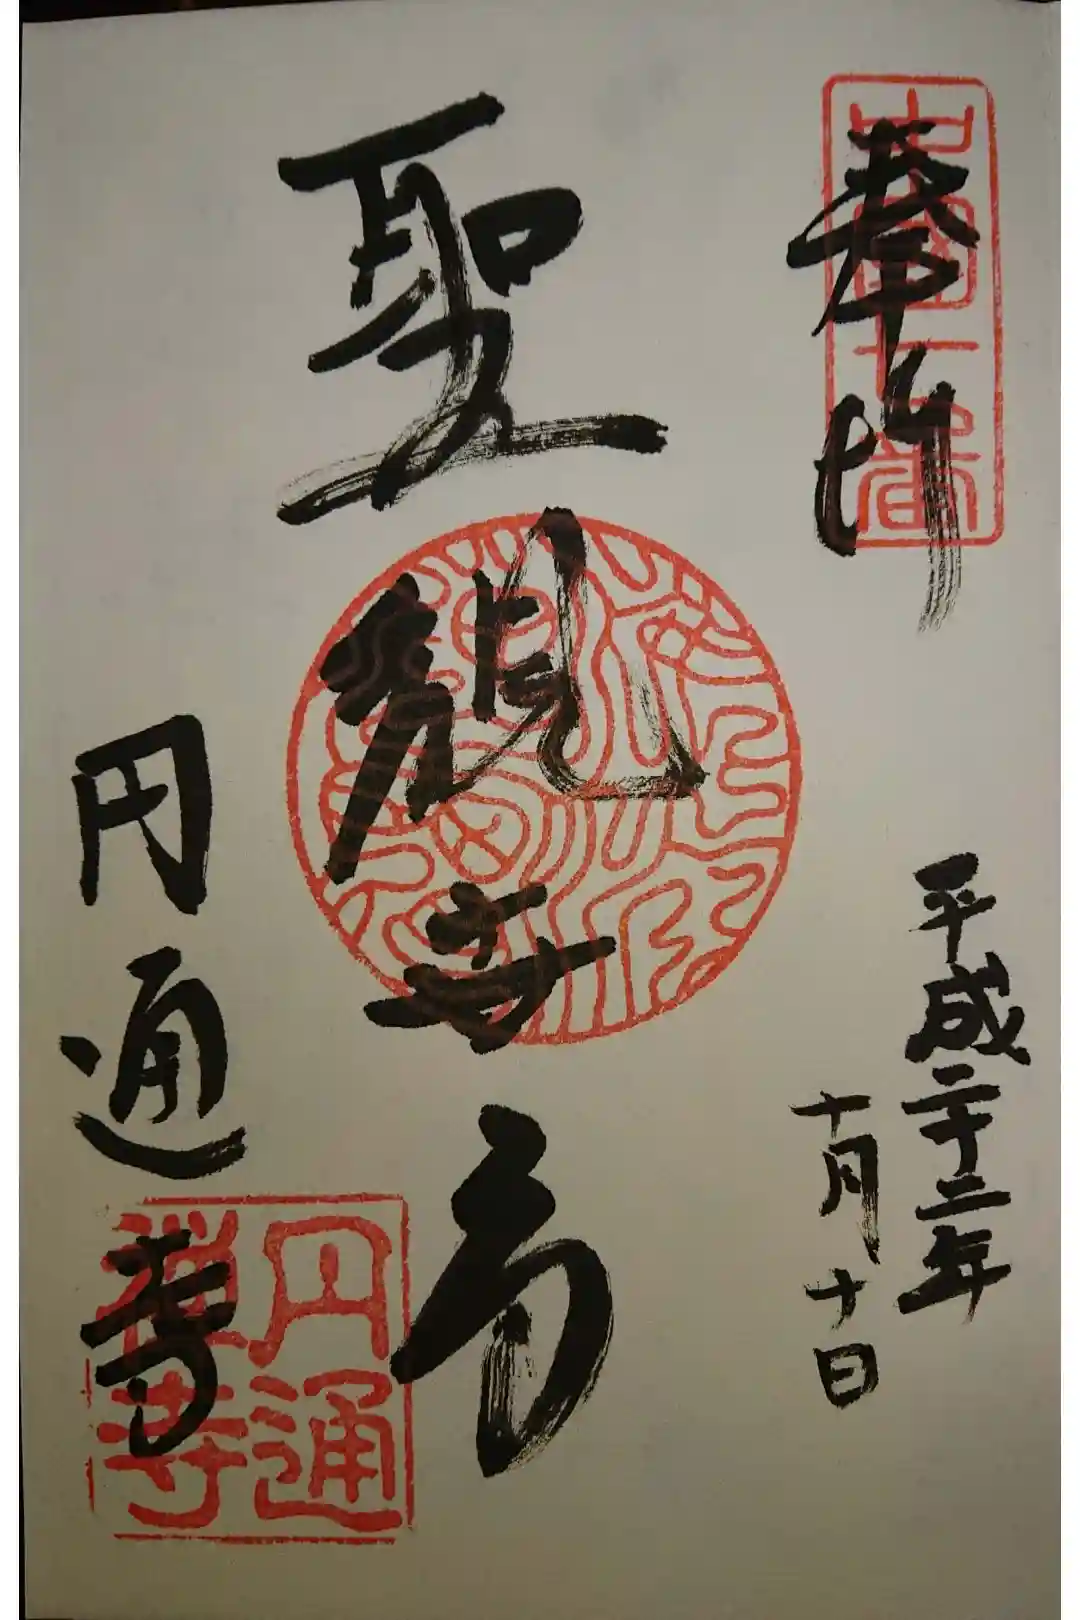 奉拝
中國七番
平成二十二年
十月十日
聖観音
円通寺
円通
禅寺